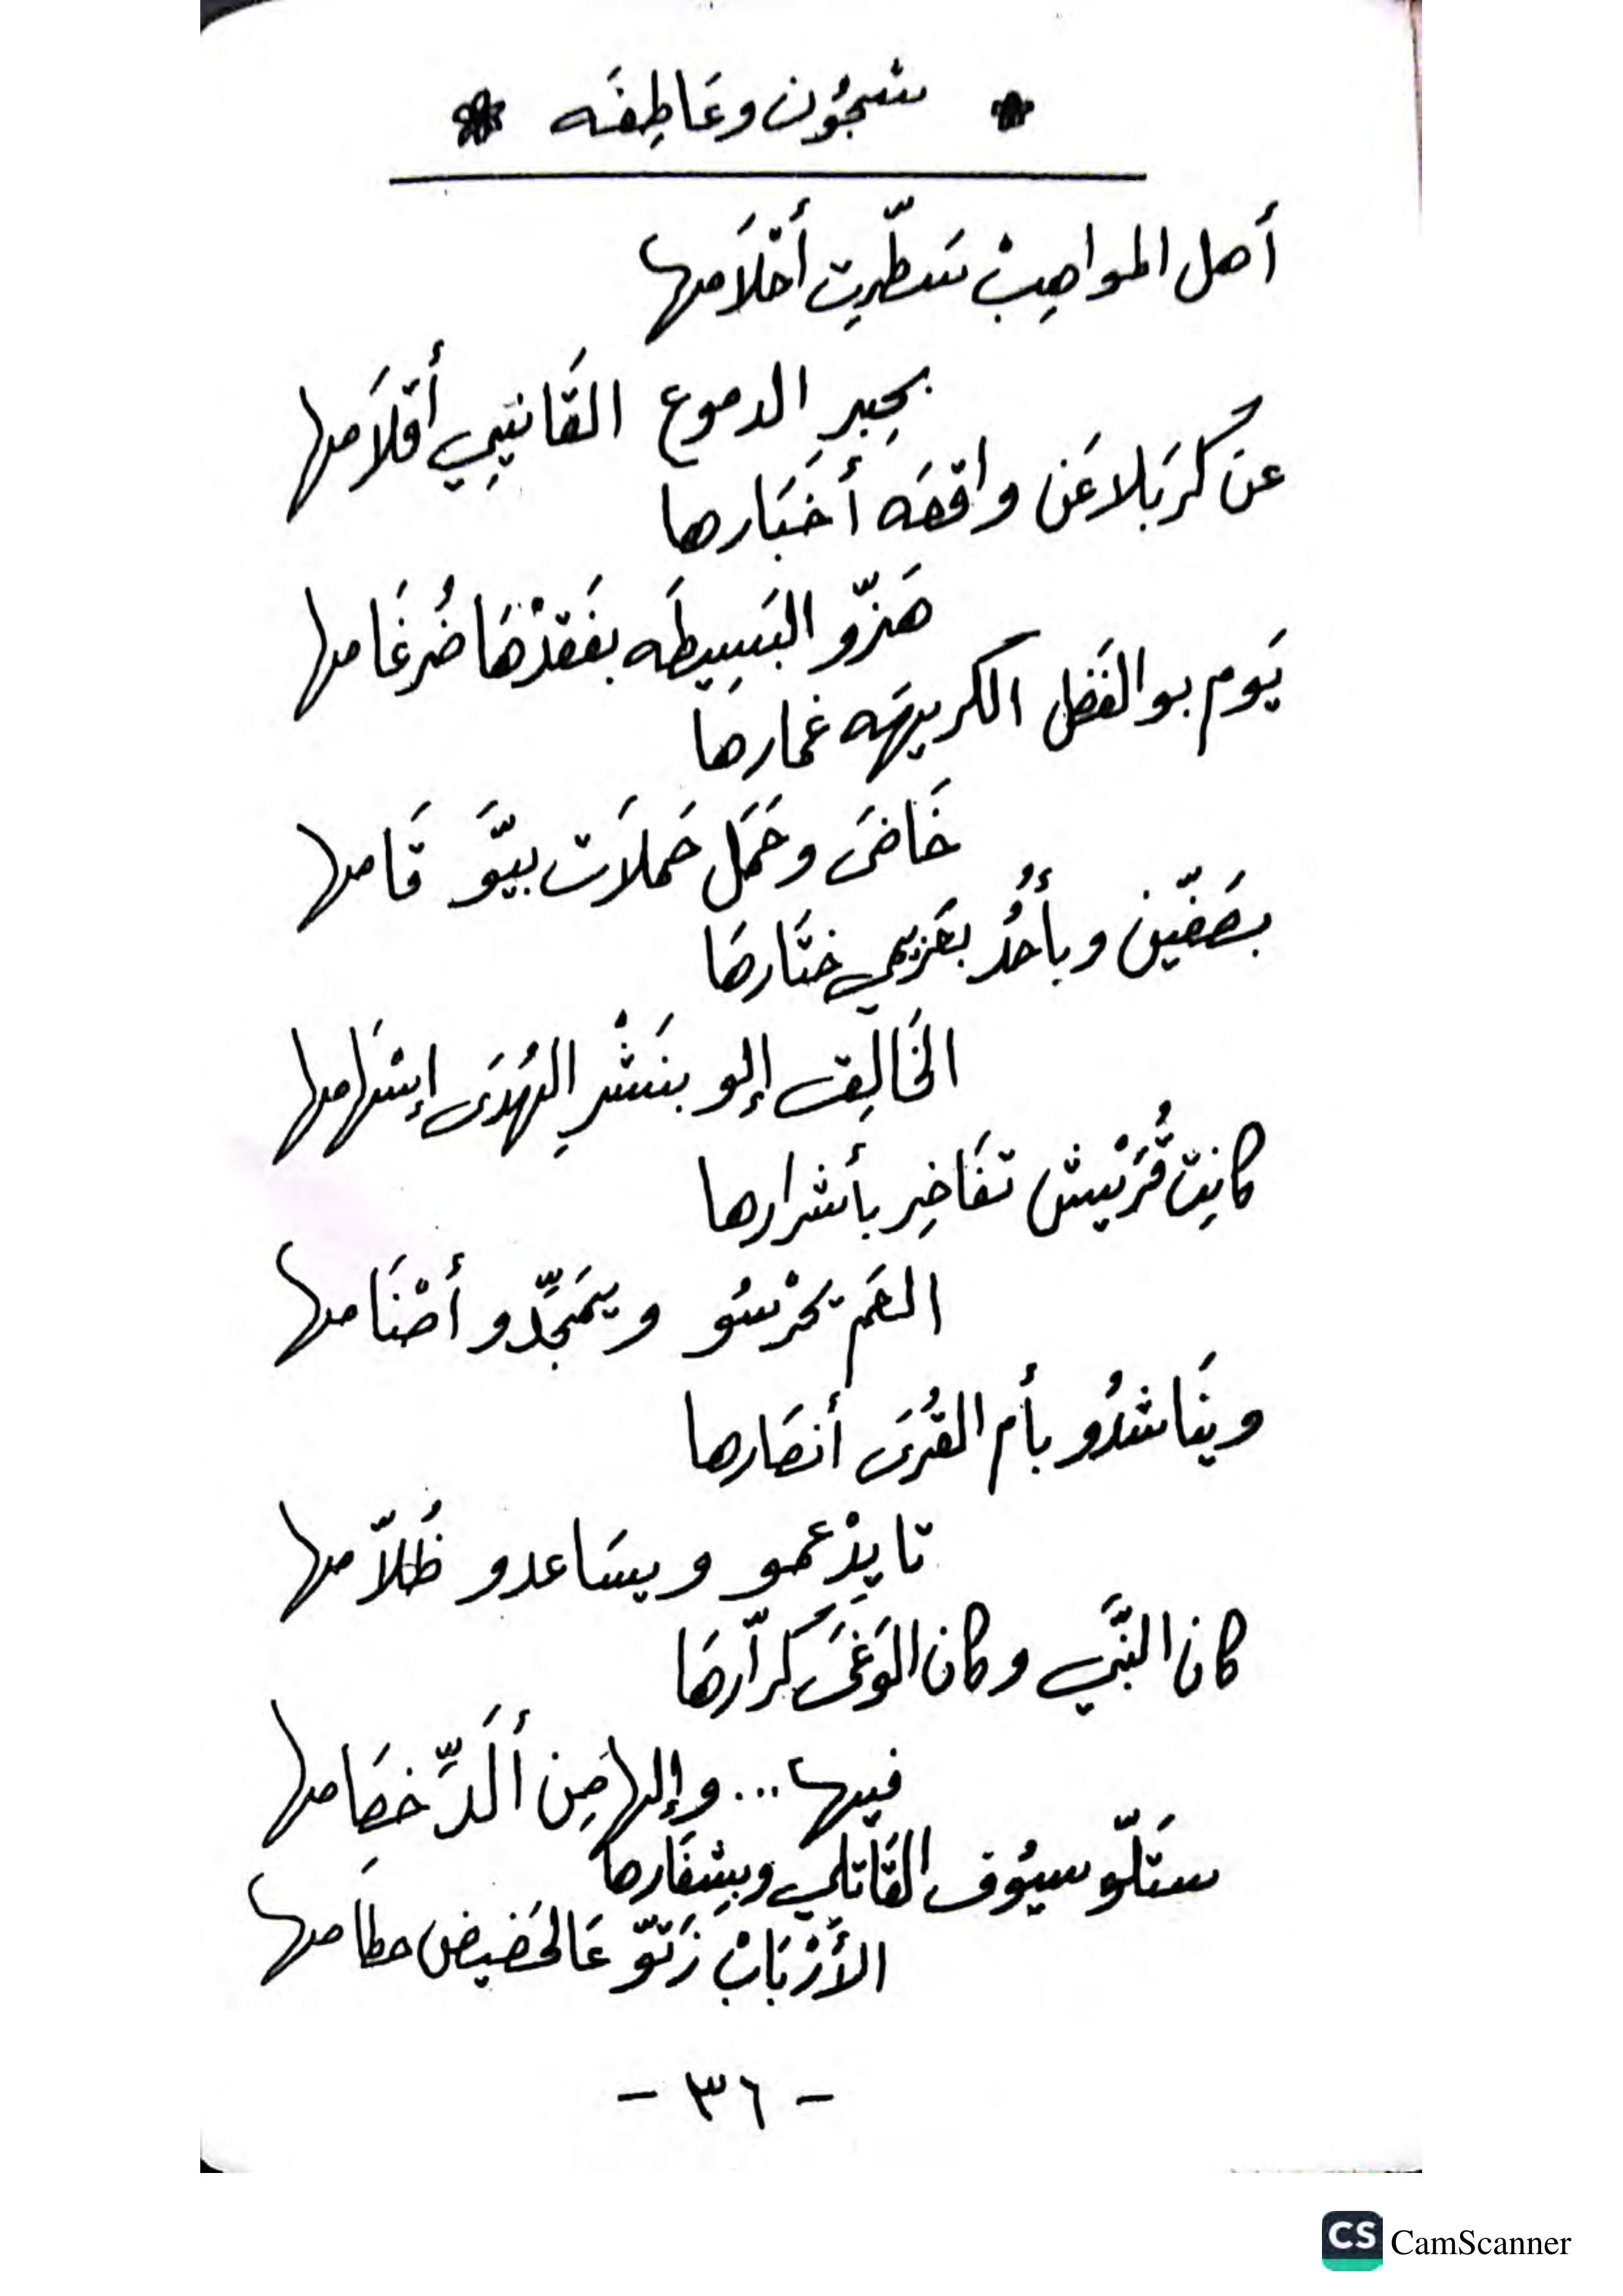 شجُون وعَاطِفَه
أهل المواهِبْ سَطّرِت أحْلاَمها
بحِبرِ الدموع القَانيِي أقلاَمها
عن كَربَلا عَن واقعَه أخبَارها
هَزّو البَسِيطَه بفَقدْهَا ضُرغَامها
يَوم بو الفَضل الكَريهَه غمارها
خَاضَ وحَمَل حَملاَت بيّوَ قَامها
بصَفّين وبأُحُد بعَزمي ختَارهَا
الخَالِق إلو بنَشْرِ الهُدَى إسْهَامها
كانِت قُرَيْش تفَاخِر بأشرارها
العَم تحْرسُو ويمَجِّدو أصْنَامها
وينَاشدُو بأم القُرَى أنصَارها
تا يِدْعمو ويسَاعدو ظُلاّمها
كان النبَّي وكان الوَغَى كَرّارهَا
فيها... وإلها مِن ألَدِّ خصَامها
ستَلّو سيُوف القَاتلي وبشِفَارها
الأرْبَابْ رَتّو عَالحَضيض حطَامها
- ٣٦ -
CS CamScanner